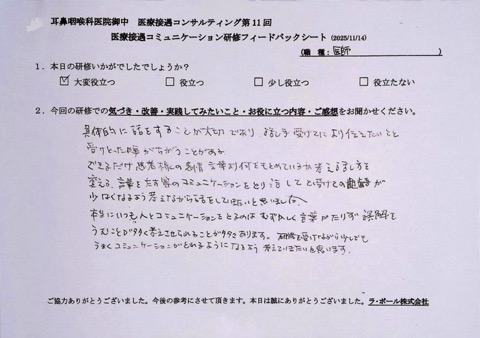 耳鼻咽喉科医院御中　医療接遇コンサルティング第11回
医療接遇コミュニケーション研修フィードバックシート（2025/11/14）
（職 種：医師　　　　）
１．本日の研修いかがでしたでしょうか？
☑ 大変役立つ　　□ 役立つ　　□ 少し役立つ　　□ 役立たない
２．今回の研修での気づき・改善・実践してみたいこと・お役に立つ内容・ご感想をお聞かせください。
具体的に話をすることが大切であり 話し手 受けてにより伝えたいことと
受けとった時がちがうことがある
できるだけ患者様の表情 言葉より何をもとめているか考え話し方を
変える、言葉をたす等のコミュニケーションをとり 話し手と受け手の齟齬が
少なくなるよう考えながら話をしていきたいと思いました。
本当にいつも人とコミュニケーションをとるのは むずかしく 言葉がたりず 誤解を
うむことが多く考えさせられることが多々あります。研修を受けながら少しでも
うまくコミュニケーションがとれるようになるよう 考えていきたいと思います。
ご協力ありがとうございました。今後の参考にさせて頂きます。本日は誠にありがとうございました。ラ・ポール株式会社